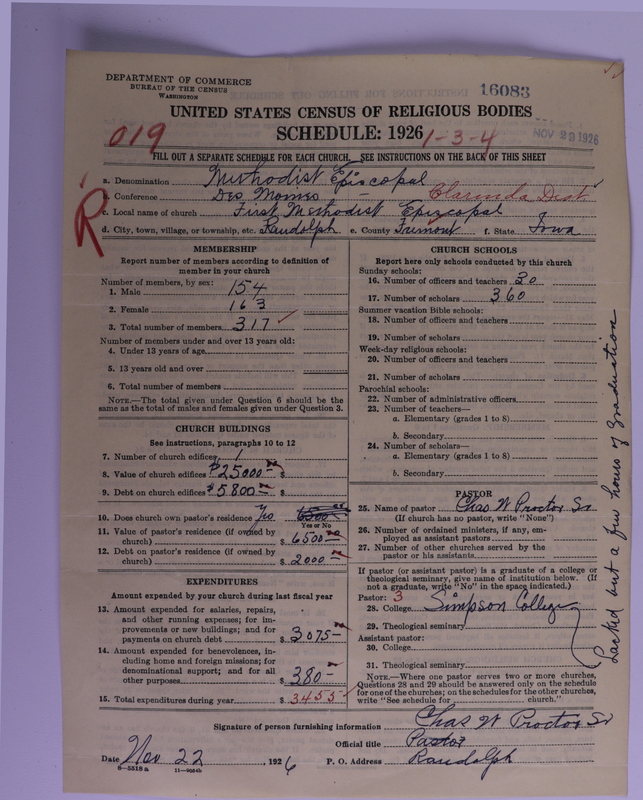 DEPARTMENT OF COMMERCE
BUREAU OF THE CENSUS
WASHINGTON
16083
UNITED STATES CENSUS OF RELIGIOUS BODIES
SCHEDULE: 1926
NOV 29 1926
019
1-3-4
FILL OUT A SEPARATE SCHEDULE FOR EACH CHURCH. SEE INSTRUCTIONS ON THE BACK OF THIS SHEET
a. Denomination Methodist Episcopal
b. Conference Des Moines Clarinda Dist
R
c. Local name of church First Methodist Episcopal
d. City, town, village, or township, etc. Randolph e. County Fremont f. State Iowa
MEMBERSHIP
Report number of members according to definition of
member in your church
Number of members, by sex:
1. Male 154
2. Female 163
3. Total number of members 317
Number of members under and over 13 years old:
4. Under 13 years of age
5. 13 years old and over
6. Total number of members
NOTE.—The total given under Question 6 should be the
same as the total of males and females given under Question 3.
CHURCH BUILDINGS
See instructions, paragraphs 10 to 12
7. Number of church edifices 1
8. Value of church edifices $25000— $
9. Debt on church edifices $5800— $
10. Does church own pastor's residence Yes
Yes or No
11. Value of pastor's residence (if owned by
church) $ 6500
12. Debt on pastor's residence (if owned by
church) $ 2000—
EXPENDITURES
Amount expended by your church during last fiscal year
13. Amount expended for salaries, repairs,
and other running expenses; for im-
provements or new buildings; and for
payments on church debt $ 3075—
14. Amount expended for benevolences, in-
cluding home and foreign missions; for
denominational support; and for all
other purposes $ 380—
15. Total expenditures during year $ 3455
CHURCH SCHOOLS
Report here only schools conducted by this church
Sunday schools:
16. Number of officers and teachers 30
17. Number of scholars 360
Summer vacation Bible schools:
18. Number of officers and teachers
19. Number of scholars
Week-day religious schools:
20. Number of officers and teachers
21. Number of scholars
Parochial schools:
22. Number of administrative officers
23. Number of teachers—
a. Elementary (grades 1 to 8)
b. Secondary
24. Number of scholars—
a. Elementary (grades 1 to 8)
b. Secondary
PASTOR
25. Name of pastor Chas W Proctor Sr
(If church has no pastor, write "None")
26. Number of ordained ministers, if any, em-
ployed as assistant pastors
27. Number of other churches served by the
pastor or his assistants
If pastor (or assistant pastor) is a graduate of a college or
theological seminary, give name of institution below. (If
not a graduate, write "No" in the space indicated.)
Pastor: 3
28. College Simpson College
29. Theological seminary
Assistant pastor:
30. College
31. Theological seminary
NOTE.—Where one pastor serves two or more churches,
Questions 28 and 29 should be answered only on the schedule
for one of the churches; on the schedules for the other churches,
write "See schedule for church."
Lacked but a few hours of Graduation
Signature of person furnishing information Chas W Proctor Sr
Official title Pastor
Date Nov 22, 1926 P. O. Address Randolph
8—5818a 11—9284b